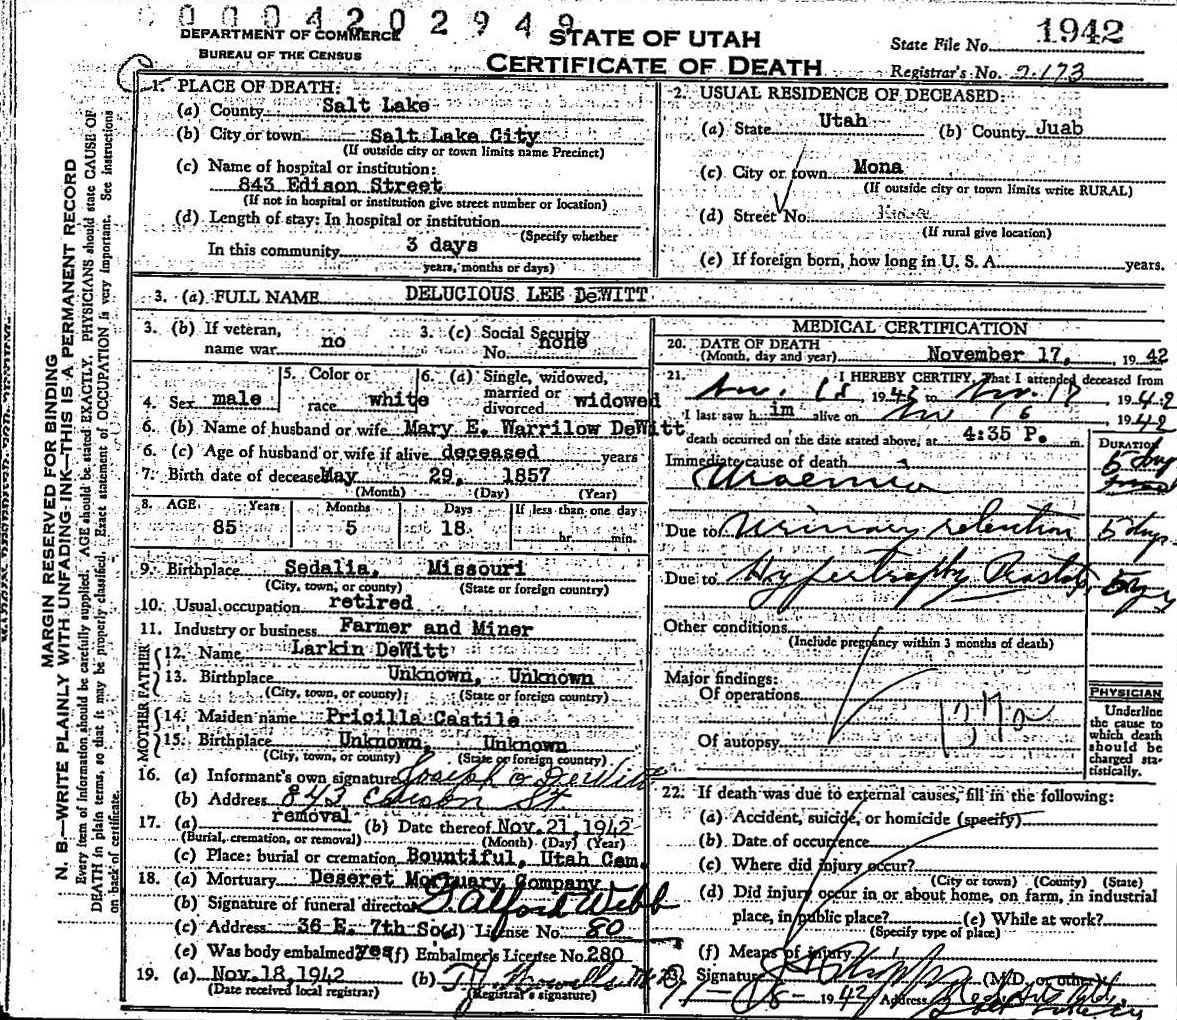 0000420 2949
DEPARTMENT OF COMMERCE
BUREAU OF THE CENSUS
STATE OF UTAH
CERTIFICATE OF DEATH
State File No. 1942
Registrar's No. 2173
MARGIN RESERVED FOR BINDING
N. B.—WRITE PLAINLY WITH UNFADING INK—THIS IS A PERMANENT RECORD
Every item of information should be carefully supplied. AGE should be stated EXACTLY. PHYSICIANS should state CAUSE OF
DEATH in plain terms, so that it may be properly classified. Exact statement of OCCUPATION is very important. See instructions
on back of certificate.
1. PLACE OF DEATH:
(a) County Salt Lake
(b) City or town Salt Lake City
(If outside city or town limits name Precinct)
(c) Name of hospital or institution:
843 Edison Street
(If not in hospital or institution give street number or location)
(d) Length of stay: In hospital or institution
(Specify whether
In this community 3 days
years, months or days)
2. USUAL RESIDENCE OF DECEASED:
(a) State Utah (b) County Juab
(c) City or town Mona
(If outside city or town limits write RURAL)
(d) Street No.
(If rural give location)
(e) If foreign born, how long in U. S. A. years.
3. (a) FULL NAME DELUCIOUS LEE DeWITT
3. (b) If veteran, name war no
3. (c) Social Security No. none
4. Sex male
5. Color or race white
6. (a) Single, widowed, married or divorced widowed
6. (b) Name of husband or wife Mary E. Warrilow DeWitt
6. (c) Age of husband or wife if alive deceased years
7. Birth date of deceased May 29, 1857
(Month) (Day) (Year)
8. AGE Years Months Days If less than one day
85 5 18 hr. min.
9. Birthplace Sedalia, Missouri
(City, town, or county) (State or foreign country)
10. Usual occupation retired
11. Industry or business Farmer and Miner
FATHER
12. Name Larkin DeWitt
13. Birthplace Unknown, Unknown
(City, town, or county) (State or foreign country)
MOTHER
14. Maiden name Pricilla Castile
15. Birthplace Unknown, Unknown
(City, town, or county) (State or foreign country)
16. (a) Informant's own signature Joseph DeWitt
(b) Address 843 Edison St
17. (a) removal (b) Date thereof Nov. 21, 1942
(Burial, cremation, or removal) (Month) (Day) (Year)
(c) Place: burial or cremation Bountiful, Utah Cem.
18. (a) Mortuary Deseret Mortuary Company
(b) Signature of funeral director Talford Webb
(c) Address 36 E. 7th So. (d) License No. 80
(e) Was body embalmed yes (f) Embalmer's License No. 280
19. (a) Nov. 18, 1942 (b) T.J. Howells M.D.
(Date received local registrar) (Registrar's signature)
MEDICAL CERTIFICATION
20. DATE OF DEATH
(Month, day and year) November 17, 1942
21. I HEREBY CERTIFY, That I attended deceased from
Nov. 1942 to Nov. 17 1942
I last saw him alive on Nov 16 1942
death occurred on the date stated above, at 4:35 P. m.
DURATION
Immediate cause of death
Uraemia 5 days
Due to Urinary retention 5 days
Due to Hypertrophy Prostate
Other conditions
(Include pregnancy within 3 months of death)
Major findings:
Of operations
Of autopsy
137a
PHYSICIAN
Underline
the cause to
which death
should be
charged sta-
tistically.
22. If death was due to external causes, fill in the following:
(a) Accident, suicide, or homicide (specify)
(b) Date of occurrence
(c) Where did injury occur?
(City or town) (County) (State)
(d) Did injury occur in or about home, on farm, in industrial
place, in public place? (e) While at work?
(Specify type of place)
(f) Means of injury
23. Signature (M.D. or other)
11-18-1942 Address